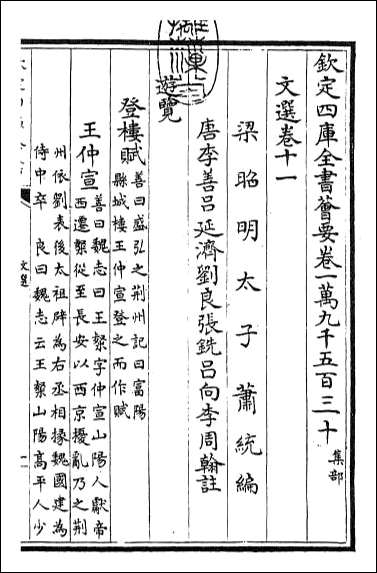 欽定四庫全書薈要卷一萬九千五百三十
集部
文選卷十一
梁昭明太子蕭統編
唐李善吕延濟劉良張銑吕向李周翰註
遊覽
登樓賦
善曰盛弘之荆州記曰富陽
縣城樓王仲宣登之而作賦
王仲宣
善曰魏志曰王粲字仲宣山陽人獻帝
西遷粲從至長安以西京擾亂乃之荆
州依劉表後太祖辟為右丞相掾魏國建為
侍中卒 良曰魏志云王粲山陽高平人少
文選